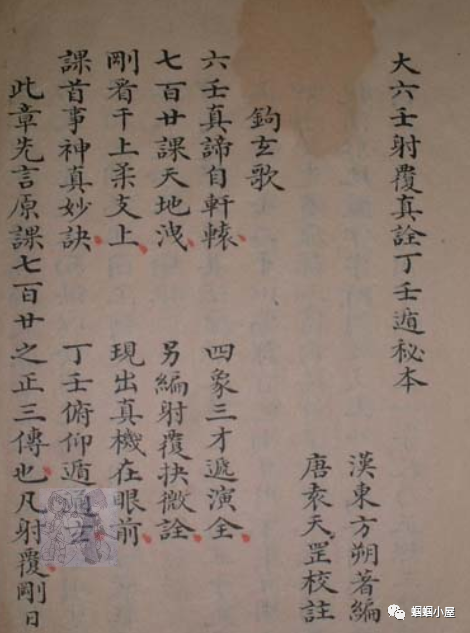 大六壬射覆真詮丁壬遁秘本
漢東方朔著編
唐袁天罡校註
鉤玄歌
六壬真諦自軒轅 四象三才遞演全
七百廿課天地洩 另編射覆抉微詮
剛看干上柔支上 現出真機在眼前
課首事神真妙訣 丁壬俯仰遁通玄
此章先言原課七百廿之正三傳也凡射覆剛日
蝈蝈小屋